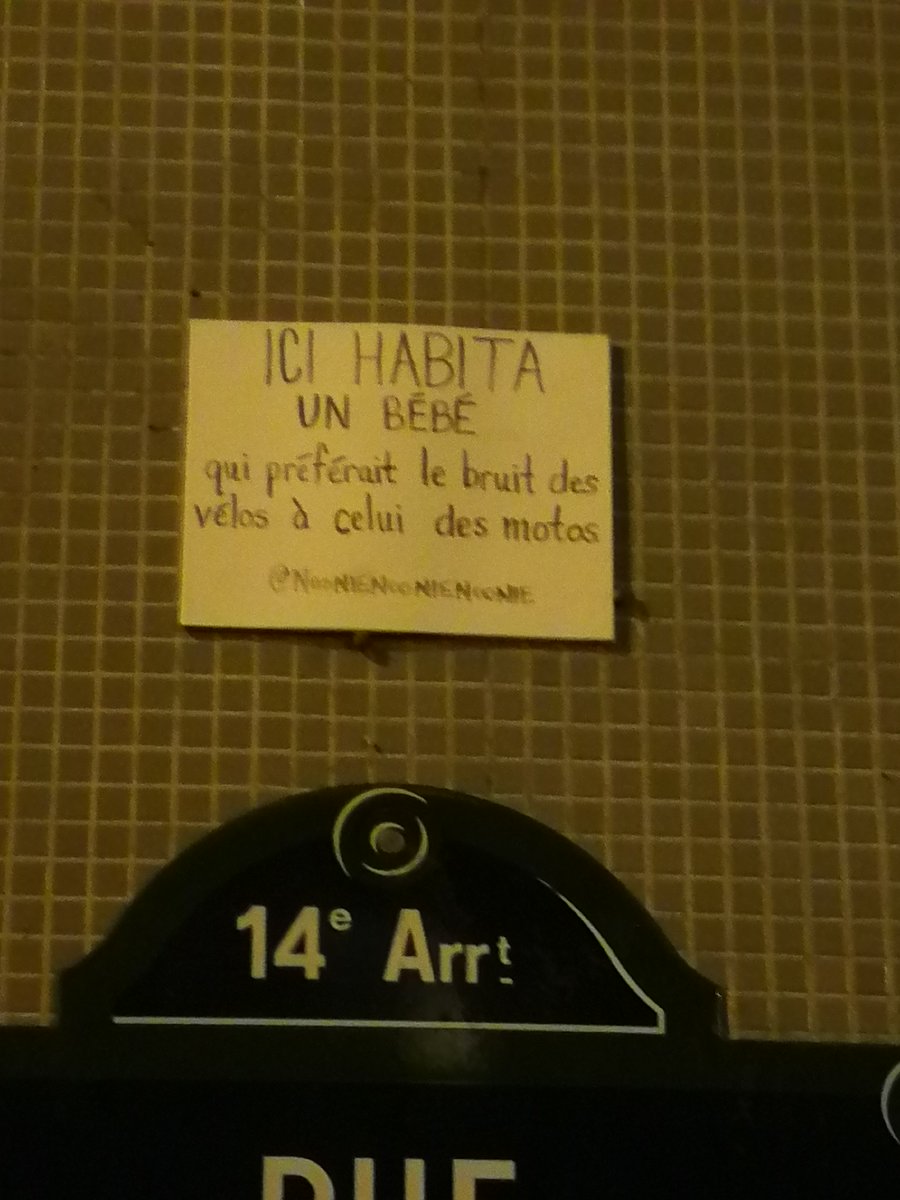 ICI HABITA
UN BÉBÉ
qui préférait le bruit des
vélos à celui des motos
14e Arrt
RUE